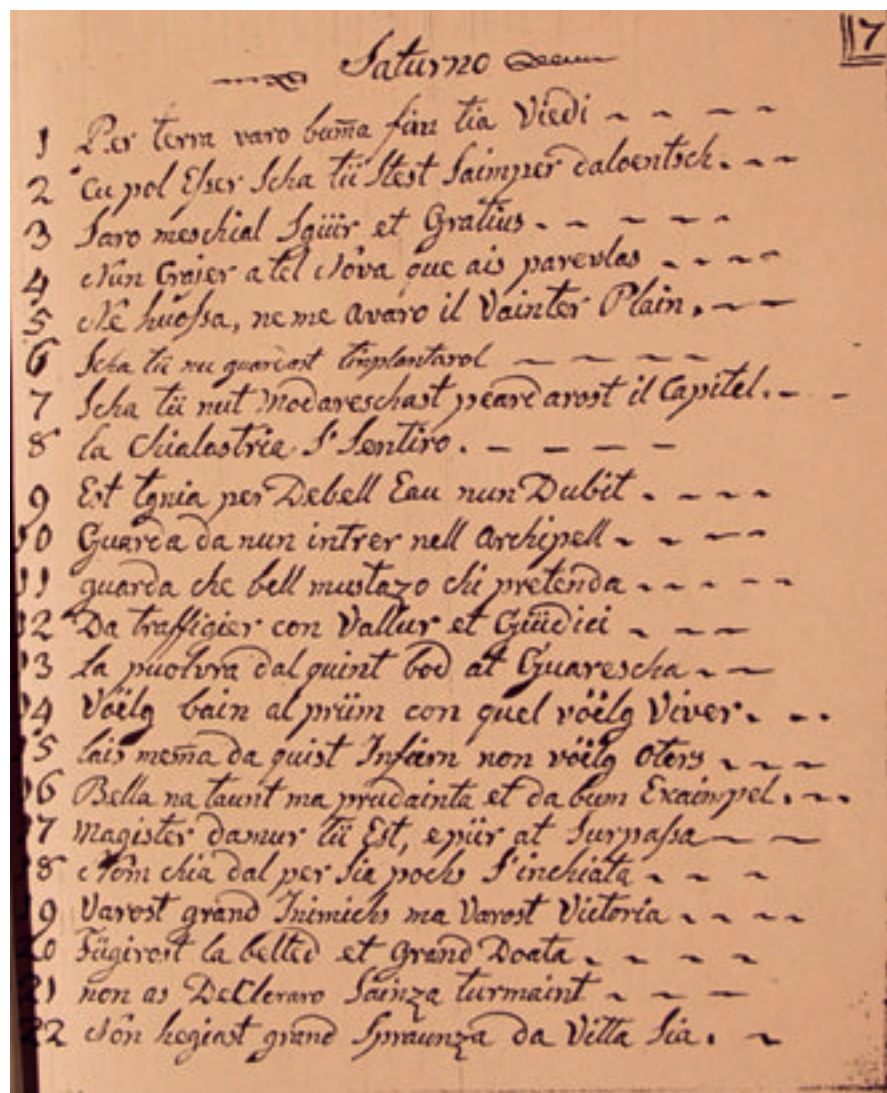 17
Saturno
1 Per terra varo buma fin tia Viedi
2 Cu pol Esser Scha tü Stest Saimper daloentsch.
3 Saro meschial Sgüir et Gratius
4 Nun Crajer a tel Nova que ais parevlas
5 Ne huossa, ne me avaro il Vainter Plain,
6 Scha tü nu guardast
7 Scha tü nut Modareschast peard arost il Capitel.
8 la Chialastria S' Sentiro.
9 Est tgnia per Debell Eau nun Dubit
10 Guarda da nun intrer nell Archipell
11 guarda che bell mustazo chi pretenda
12 Da traffigier con Vallur et Güdici
13 La puolvra dal quint bod at Guarescha
14 Vöilg bain al prüm con quel vöilg Viver.
15 lais mema da quist Infiern non vöilg oters
16 Bella na taunt ma prudainta et da bum Exaimpel.
17 Magister damur tü Est, e pür at Surpassa
18 Nom chia dal per Sia pochs S' inchiata
19 Varost grand Inimichs ma Varost Victoria
20 Fügirost la belted et Grand Doata
21 non as DeCleraro Sainza turmaint
22 Non hegiast grand Spraunza da Vitta Sia.